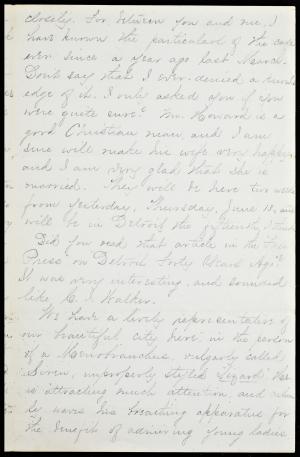 closely. For between you and me, I
have known the particulars of the case
ever since a year ago last March.
Don't say that I ever denied a knowl-
edge of it. I only asked you if you
were quite sure? Mr. Howard is a
good Christian man, and I am
sure will make his wife very happy
and I am very glad that she is
married. They will be here two weeks
from yesterday, Thursday, June 13, and
will be in Detroit the fifteenth, I think
Did you read that article in the Free
Press on Detroit Forty Years Ago?
It was very interesting, and sounded
like C. I. Walker.
We have a lively representative of
our beautiful city here, in the person
of a Menobranchus, vulgarly called
Siren, improperly styled Lizard. He
is attracting much attention, and
waves his breathing apparatus for
the benefit of admiring young ladies